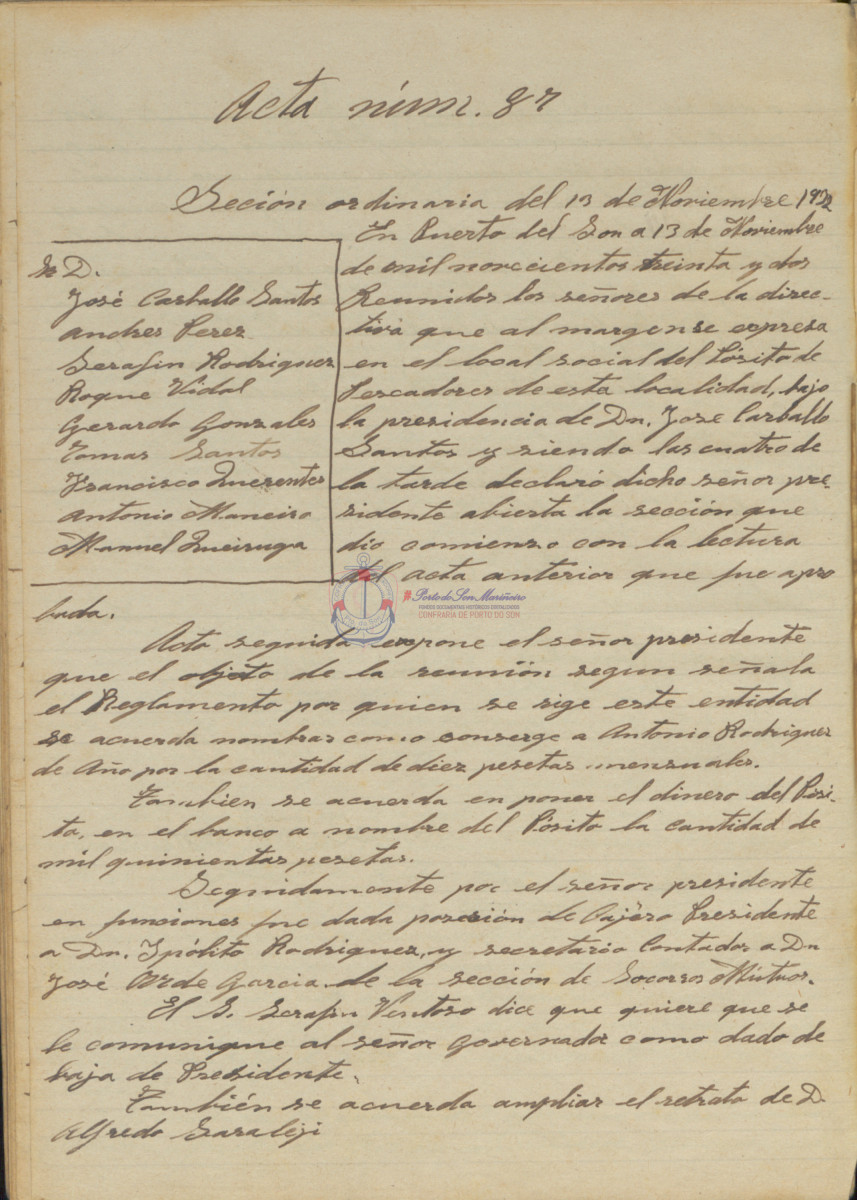 Acta núm. 87
Seción ordinaria del 13 de Noviembre 1932
Sr D.
José Carballo Santos
Andres Perez
Serafin Rodriguez
Roque Vidal
Gerardo Gonzales
Tomas Santos
Francisco
Antonio Maneiro
Manuel Queiruga
En Puerto del Son a 13 de Noviembre
de mil novecientos treinta y dos
Reunidos los señores de la direc-
tiva que al margen se expresa
en el local social del Pósito de
Pescadores de esta localidad, bajo
la presidencia de Dn. Jose Carballo
Santos y siendo las cuatro de
la tarde declaró dicho señor pre-
sidente abierta la sección que
dio comienzo con la lectura
del acta anterior que fue apro
bada.
Porto do Son Mariñeiro
FONDOS DOCUMENTAIS HISTÓRICOS DIXITALIZADOS
CONFRARÍA DE PORTO DO SON
Acto seguida expone el señor presidente
que el objeto de la reunión segun señala
el Reglamento por quien se rige este entidad
se acuerda nombrar como conserge a Antonio Rodriguez
de Año por la cantidad de diez pesetas mensuales.
Tambien se acuerda en poner el dinero del Pósi-
to, en el banco a nombre del Pósito la cantidad de
mil quinientas pesetas.
Seguidamente por el señor presidente
en funciones fue dada posesión de Cajero Presidente
a Dn. Ipólito Rodriguez, y secretario Contador a Dn
José Garcia de la sección de Socorros Mútuos.
El S. Serafin Ventoso dice que quiere que se
le comunique al señor governador como dado de
baja de Presidente.
También se acuerda ampliar el retrato de D.
Alfredo Saralegi